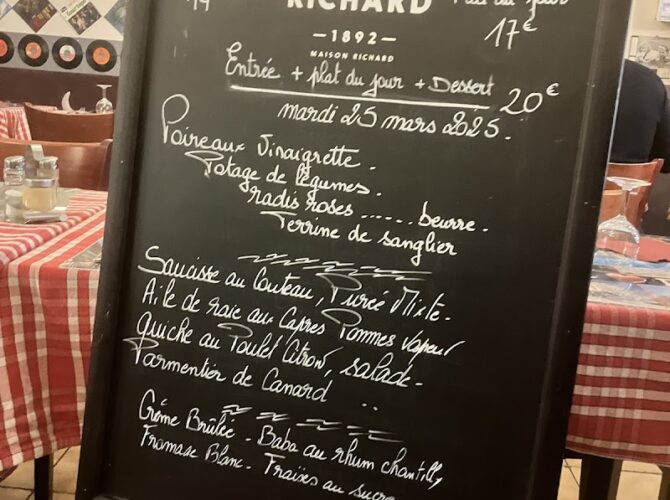 RICHARD
Plat du jour
17€
— 1892 —
MAISON RICHARD
Entrée + plat du jour + Dessert
20€
mardi 25 mars 2025.
Poireaux Vinaigrette.
Potage de légumes.
radis roses ...... beurre.
Terrine de sanglier
Saucisse au Couteau, Purée Mixte.
Aile de raie aux Capres Pommes Vapeur
Quiche au Poulet Citron, salade.
Parmentier de Canard
Crème Brûlée - Baba au rhum chantilly,
Fromage Blanc - Fraises au sucre